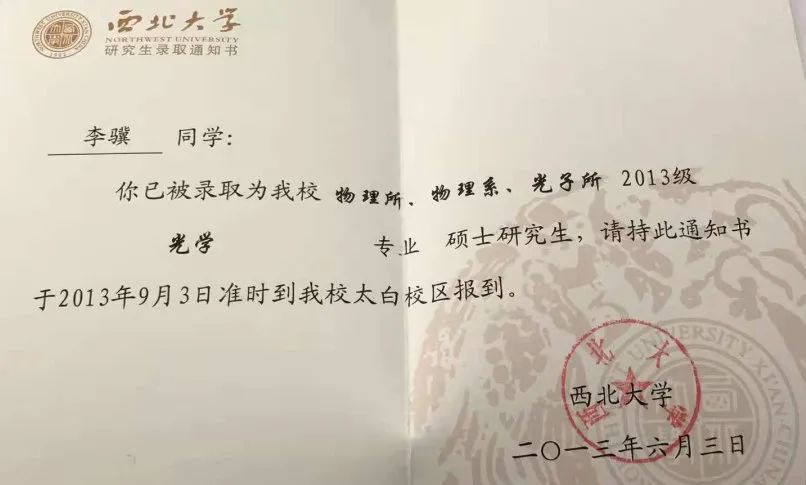 西北大学
NORTHWEST UNIVERSITY
研究生录取通知书
李骥 同学:
你已被录取为我校 物理所、物理系、光子所 2013级
光学 专业 硕士研究生，请持此通知书
于2013年9月3日准时到我校太白校区报到。
西北大学
西北大学
二〇一三年六月三日